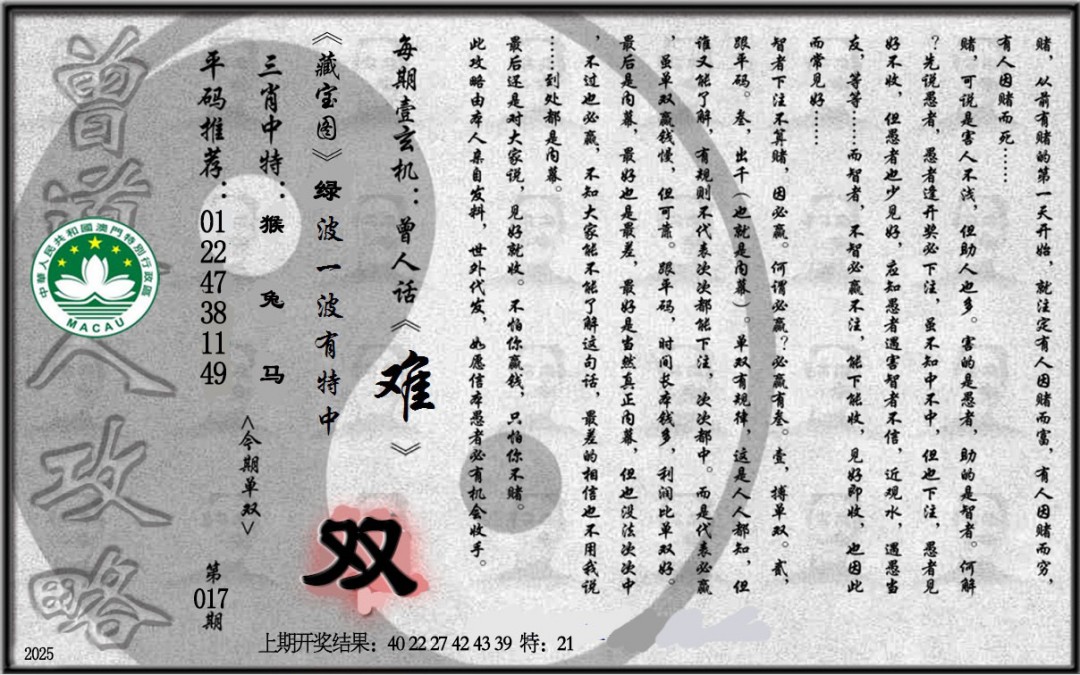 赌，从前有赌的第一天开始，就注定有人因赌而富，有人因赌而穷，
有人因赌而死……
赌，可说是害人不浅，但助人也多。害的是愚者，助的是智者。何解
？先说愚者，愚者逢开奖必下注，虽不知中不中，但也下注，愚者见
好不收，但愚者也少见好，应知愚者遇害智者不信，近观水，遇愚当
友，等等……而智者，不智必赢不注，能下能收，见好即收，也因此
而常见好……
智者下注不算赌，因必赢。何谓必赢？必赢有叁。壹，搏单双。贰，
跟平码。叁，出千（也就是内幕）。单双有规律，这是人人都知，但
谁又能了解，有规则不代表次次都能下注，次次都中。而是代表必赢
，虽单双赢钱慢，但可靠。跟平码，时间长本钱多，利润比单双好。
最后是内幕，最好也是最差，最好是当然真正内幕，但也没法次次中
，不过也必赢，不知大家能不能了解这句话，最差的相信也不用我说
……到处都是内幕。
最后还是对大家说，见好就收。不怕你赢钱，只怕你不赌。
此攻略由本人亲自发料，世外代发，如愿信本愚者必有机会收手。
每期壹玄机：曾人话《难》
《藏宝图》绿波一波有特中
双
三肖中特：猴 兔 马
<今期单双>
平码推荐：01 22 47 38 11 49
第017期
曾道人攻略
中華人民共和國澳門特別行政區
MACAU
上期开奖结果：40 22 27 42 43 39 特：21
2025